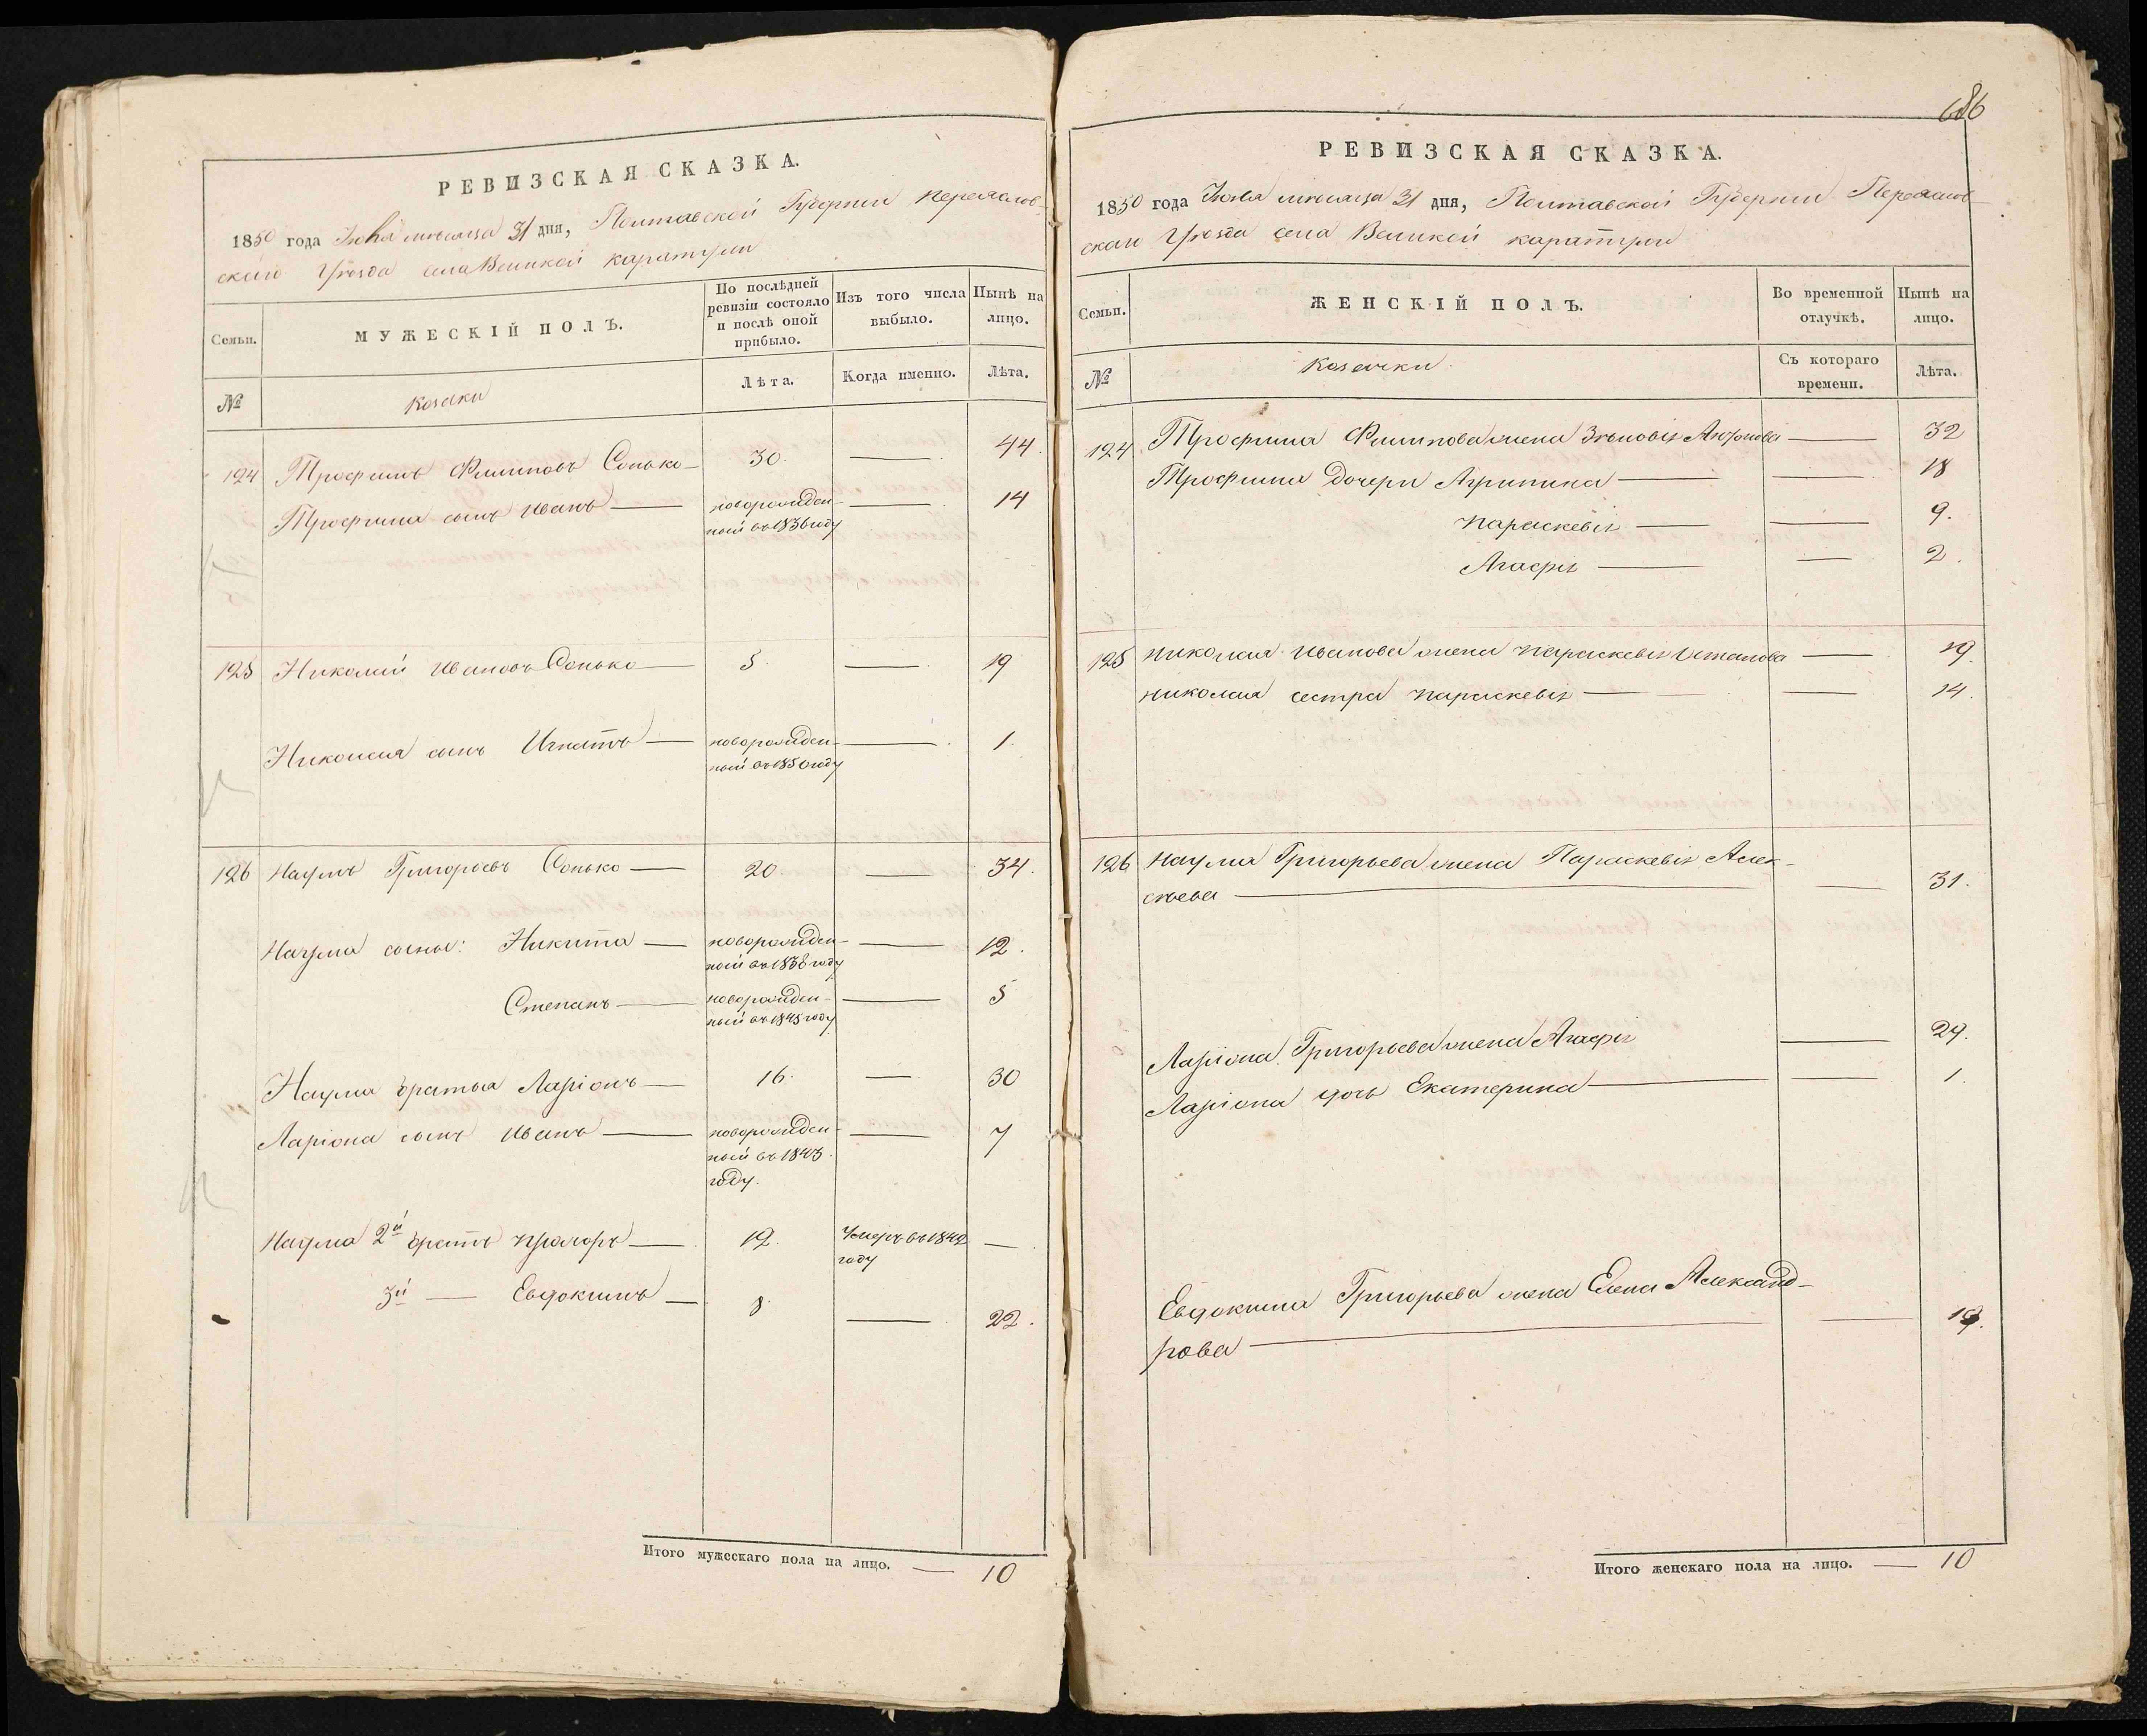 РЕВИЗСКАЯ СКАЗКА.
1850 года Іюля мѣсяца 31 дня, Полтавской Губерніи Переяслов-
скаго Уѣзда села Великой каратули
Семьи.
МУЖЕСКІЙ ПОЛЪ.
По послѣдней ревизіи состояло и послѣ оной прибыло.
Изъ того числа выбыло.
Нынѣ на лицо.
№
козаки
Лѣта.
Когда именно.
Лѣта.
124 Трофимъ Филиповъ Сонько — 30. — 44.
Трофима сынъ Иванъ — новорожден- — 14
ный въ 1836 году
125 Николай Ивановъ Сонько — 5. — 19
Николая сынъ Игнатъ — новорожден- — 1.
ный въ 1850 году
126 Наумъ Григорьевъ Сонько — 20. — 34.
Наума сыны: Никита — новорожден- — 12.
ный въ 1838 году
Степанъ — новорожден- — 5
ный въ 1845 году
Наума братья Ларіонъ — 16. — 30
Ларіона сынъ Иванъ — новорожден- — 7
ный въ 1843
году.
Наума 2й братъ Прохоръ — 12. Умеръ въ 1842 —
году
3й — Евдокимъ — 8. — 22.
Итого мужескаго пола на лицо. — 10
686
РЕВИЗСКАЯ СКАЗКА.
1850 года Іюля мѣсяца 31 дня, Полтавской Губерніи Переяслов-
скаго Уѣзда села Великой каратули
Семьи.
ЖЕНСКІЙ ПОЛЪ.
Во временной отлучкѣ.
Нынѣ на лицо.
№
козачки
Съ котораго времени.
Лѣта.
124 Трофима Филипова жена Зѣновія — 32
Трофима дочери Агрипина — — 18
Параскевія — — 9.
Агафія — — 2.
125 Николая Иванова жена Параскевія — 19.
Николая сестра Параскевія — — 14.
126 Наума Григорьева жена Параскевія Алек-
сѣева — — 31.
Ларіона Григорьева жена Агафія — 29.
Ларіона дочь Екатерина — — 1.
Евдокима Григорьева жена Елена Александ-
рова — — 19.
Итого женскаго пола на лицо. — 10